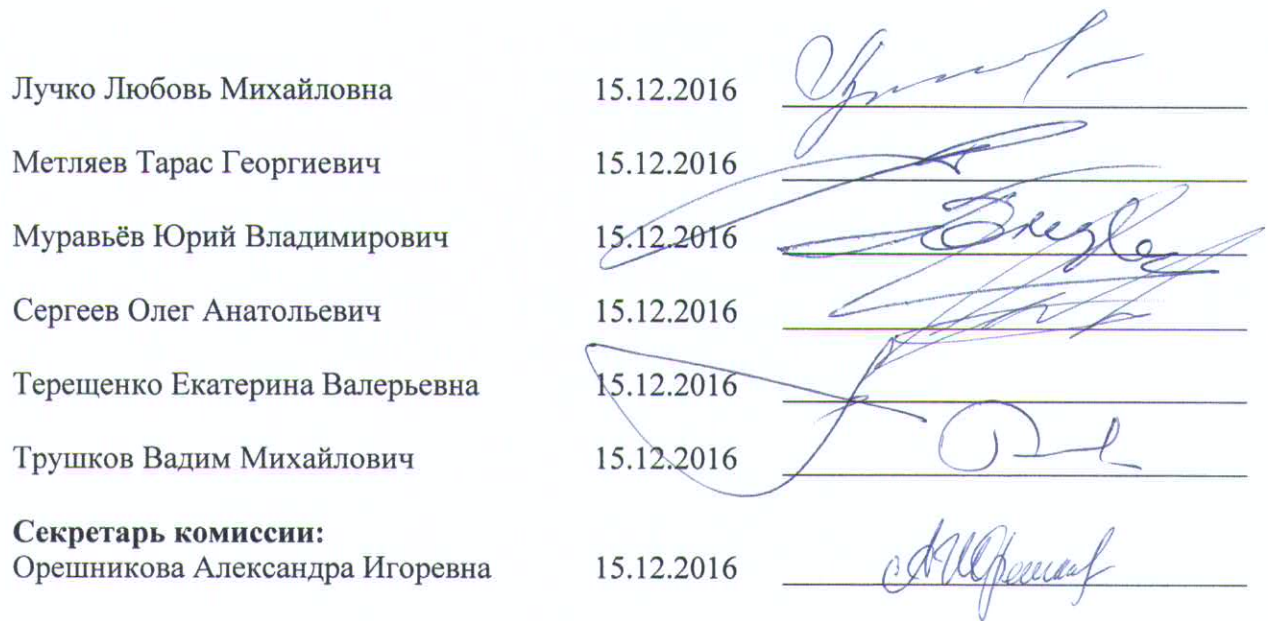 Лучко Любовь Михайловна 15.12.2016
Метляев Тарас Георгиевич 15.12.2016
Муравьёв Юрий Владимирович 15.12.2016
Сергеев Олег Анатольевич 15.12.2016
Терещенко Екатерина Валерьевна 15.12.2016
Трушков Вадим Михайлович 15.12.2016
Секретарь комиссии:
Орешникова Александра Игоревна 15.12.2016